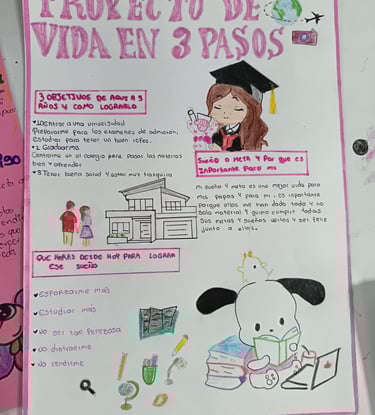 PROYECTO DE
VIDA EN 3 PASOS
3 OBJETIVOS DE AQUI A 5
AÑOS Y COMO LOGRARLO
1. Entrar a una universidad
Prepararme para los examenes de admision,
Estudiar para tener un buen icfes.
2. Graduarme
en el colegio para pasar las materias
bien y aprender
3. Tener buena salud y estar muy tranquila
SUEÑO O META Y POR QUE ES
IMPORTANTE PARA MI
Mi sueño y meta es una mejor vida para
mis papas y para mi es importante
porque ellos me han dado todo y no
solo material y quiero cumplir todas
sus metas y sueños y ser feliz
junto a ellos.
QUE HARAS DESDE HOY PARA LOGRAR
ESE SUEÑO
esforzarme más
Estudiar más
No ser tan perezosa
No distraerme
No rendirme